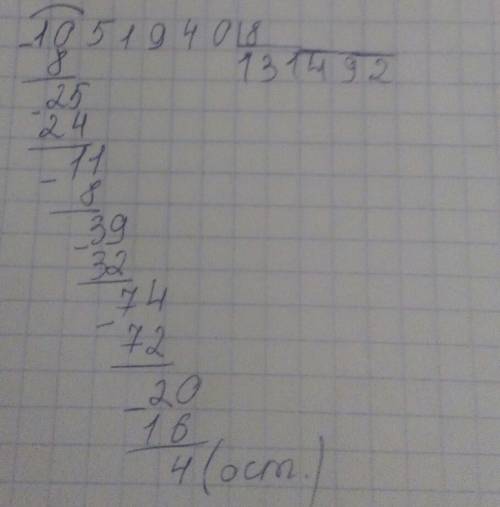 -1051940|8
8 131492
-25
24
-11
8
-39
32
-74
72
-20
16
4(ост.)